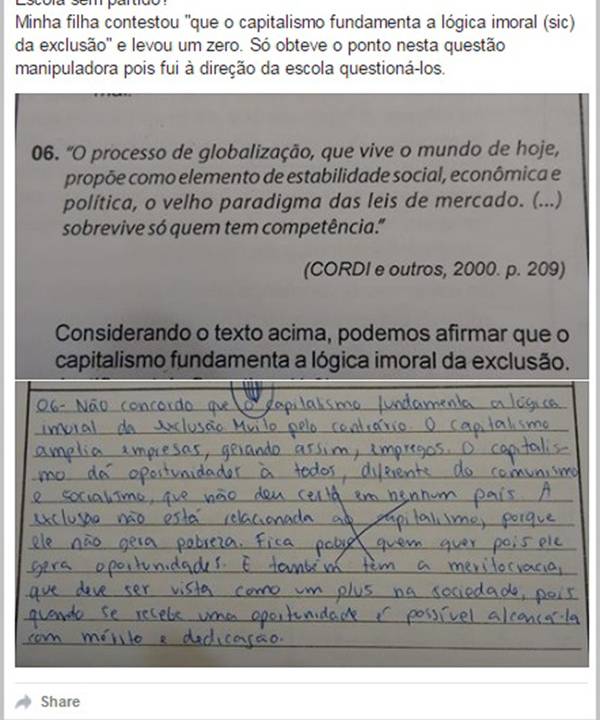 Escola sem partido?
Minha filha contestou "que o capitalismo fundamenta a lógica imoral (sic)
da exclusão" e levou um zero. Só obteve o ponto nesta questão
manipuladora pois fui à direção da escola questioná-los.
06. "O processo de globalização, que vive o mundo de hoje,
propõe como elemento de estabilidade social, econômica e
política, o velho paradigma das leis de mercado. (...)
sobrevive só quem tem competência."
(CORDI e outros, 2000. p. 209)
Considerando o texto acima, podemos afirmar que o
capitalismo fundamenta a lógica imoral da exclusão.
06- Não concordo que o capitalismo fundamenta a lógica
imoral da exclusão. Muito pelo contrário. O capitalismo
amplia empresas, gerando assim, empregos. O capitalis-
mo dá oportunidades à todos, diferente do comunismo
e socialismo, que não deu certo em nenhum país. A
exclusão não está relacionada ao capitalismo, porque
ele não gera pobreza. Fica pobre quem quer pois ele
gera oportunidades. E também tem a meritocracia,
que deve ser vista como um plus na sociedade, pois
quando se recebe uma oportunidade é possível alcançá-la
com mérito e dedicação.
Share